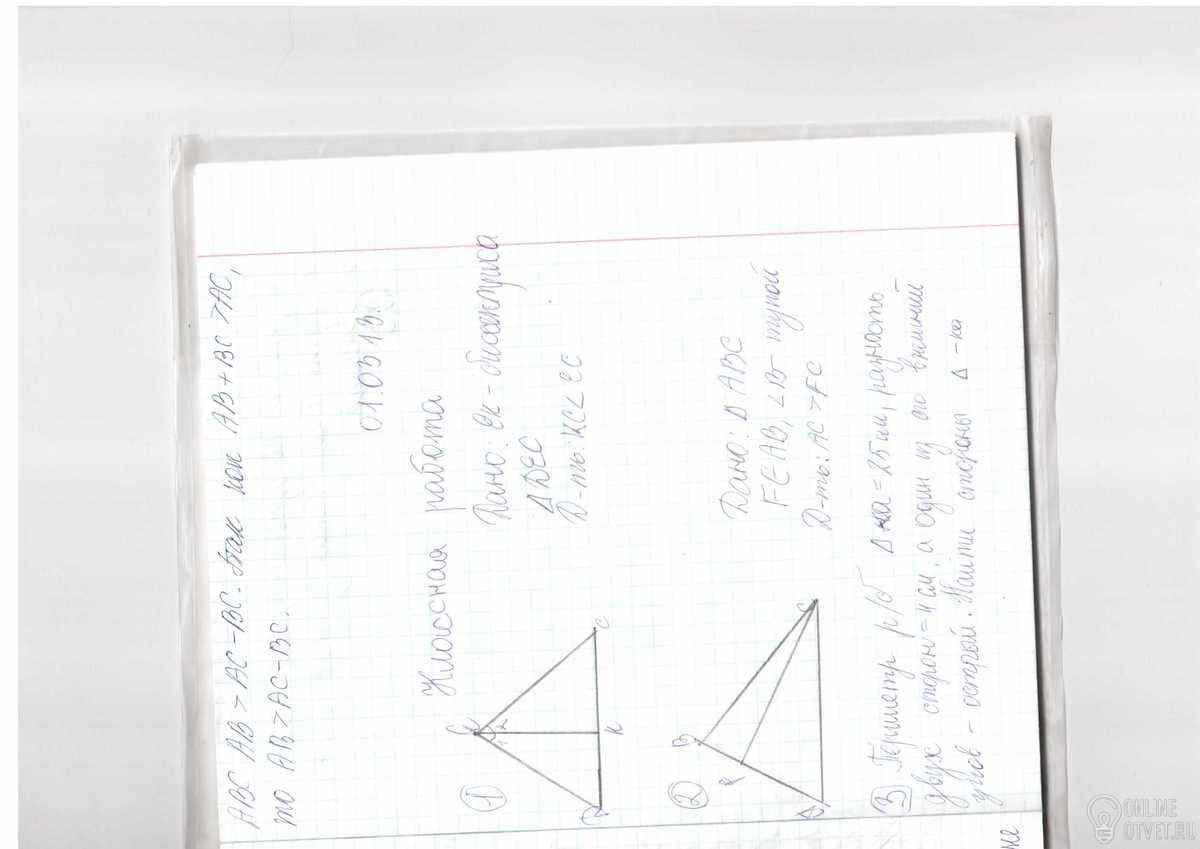 ABC AB > AC - BC. Так как AB + BC > AC,
то AB > AC - BC.
01.03 13.
Классная работа
① Дано: EK - биссектриса
Δ DEC
Д-ть: KC < EC
E
1 2
D K C
② Дано: Δ ABC
F ∈ AB, ∠B - тупой
Д-ть: AC > FC
B
F
A C
3 Периметр р/б Δ-ка = 25 см, разность
двух сторон = 4 см, а один из его внешний
углов - острый. Найти стороны Δ-ка
ONLINE
OTVET.RU